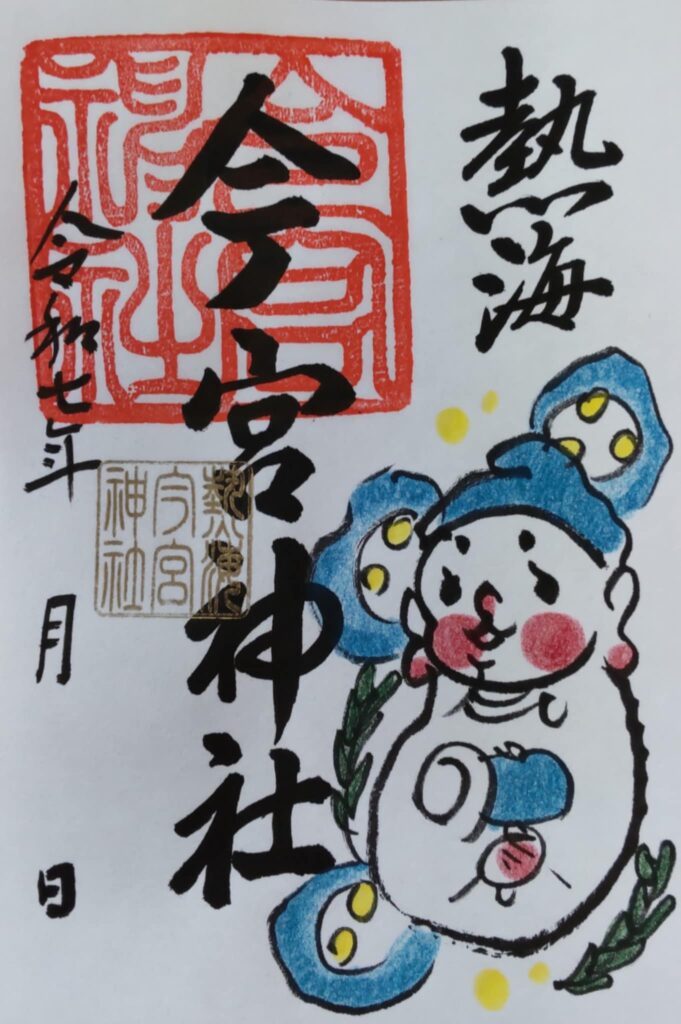 熱海
今宮神社
今宮
神社
熱海
今宮
神社
令和七年 月 日